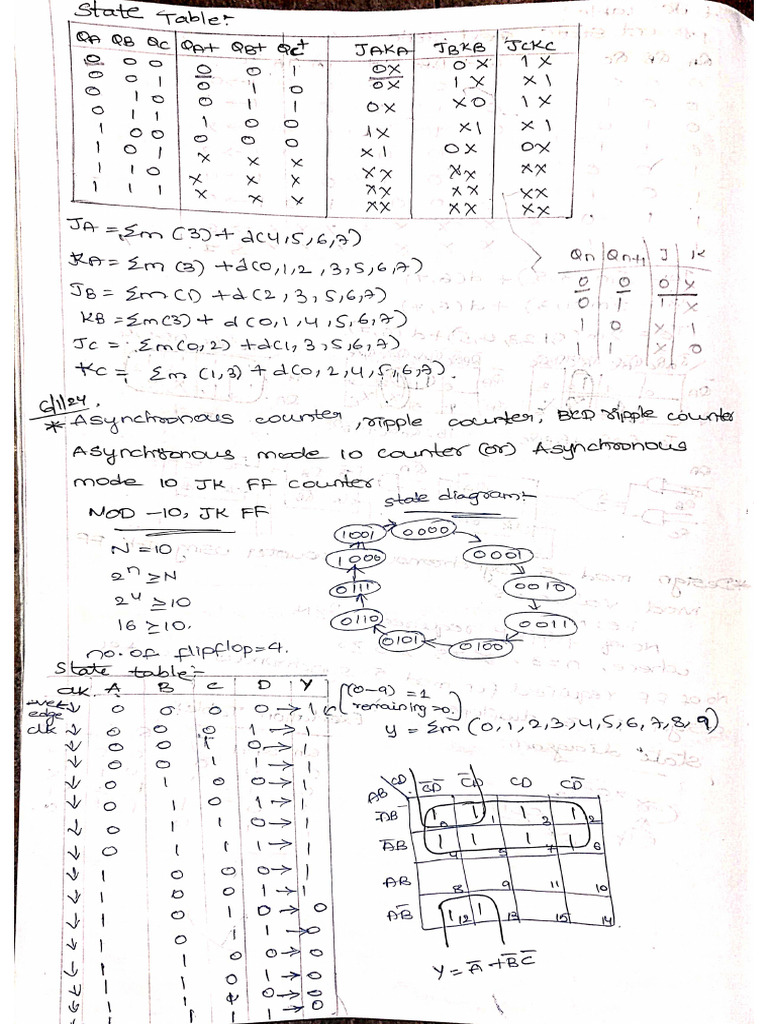 State Table:-
QA QB QC QA+ QB+ QC+ JAKA JBKB JCKC
0 0 0 0 0 1 0X 0X 1X
0 0 1 0 1 0 0X 1X X1
0 1 0 0 1 1 0X X0 1X
0 1 1 1 0 0 1X X1 X1
1 0 0 0 0 0 X1 0X 0X
1 0 1 X X X XX XX XX
1 1 0 X X X XX XX XX
1 1 1 X X X XX XX XX
JA = Σm(3) + d(4,5,6,7)
KA = Σm(3) + d(0,1,2,3,5,6,7)
JB = Σm(1) + d(2,3,5,6,7)
KB = Σm(3) + d(0,1,4,5,6,7)
JC = Σm(0,2) + d(1,3,5,6,7)
KC = Σm(1,3) + d(0,2,4,5,6,7).
Qn Qn+1 J K
0 0 0 X
0 1 1 X
1 0 X 1
1 1 X 0
6/1/24.
* Asynchronous counter, ripple counter, BCD ripple counter
Asynchronous mode 10 counter (or) Asynchronous
mode 10 JK FF counter
MOD -10, JK FF
N = 10
2ⁿ ≥ N
2⁴ ≥ 10
16 ≥ 10.
no. of flipflop = 4.
state diagram:-
1001 0000
1000 0001
0111 0010
0110 0011
0101 0100
State table:-
clk A B C D Y
edge ↓ 0 0 0 0 → 1
clk ↓ 0 0 0 1 → 1
↓ 0 0 1 0 → 1
↓ 0 0 1 1 → 1
↓ 0 1 0 0 → 1
↓ 0 1 0 1 → 1
↓ 0 1 1 0 → 1
↓ 0 1 1 1 → 1
↓ 1 0 0 0 → 1
↓ 1 0 0 1 → 1
↓ 1 0 1 0 → 0
↓ 1 0 1 1 → 0
↓ 1 1 0 0 → 0
↓ 1 1 0 1 → 0
↓ 1 1 0 → 0
↓ 1 1 1 1 → 0
(0-9) = 1
remaining = 0.
y = Σm (0,1,2,3,4,5,6,7,8,9)
AB CD C̅D̅ C̅D CD CD̅
A̅B̅ 1 0 1 1 1 3 1 2
A̅B 1 4 1 5 1 7 1 6
AB 8 9 11 10
AB̅ 1 12 1 13 15 14
Y = A̅ + B̅C̅